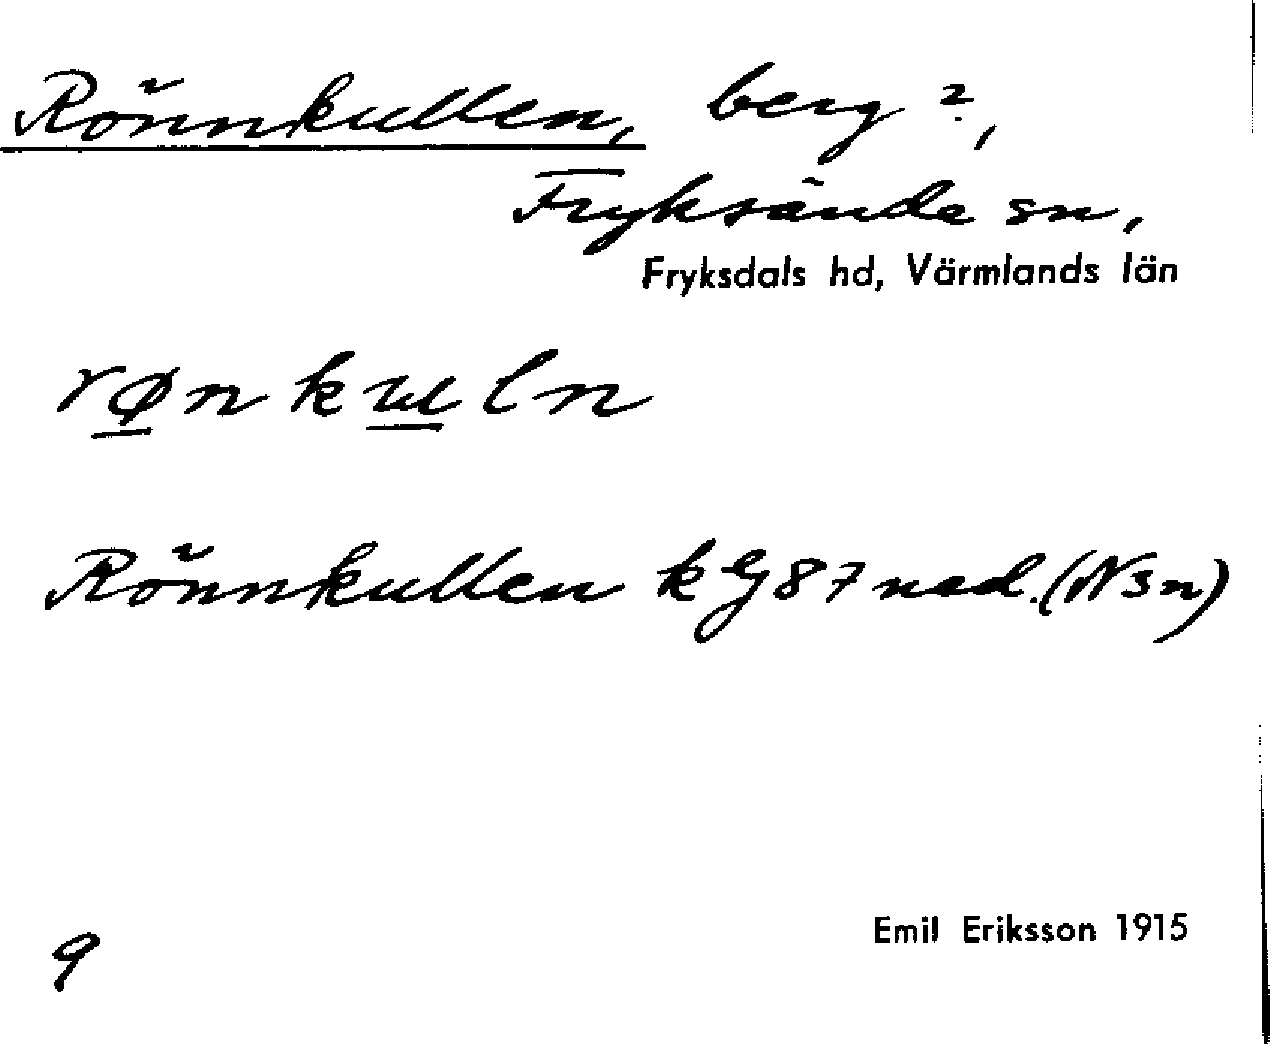 Rönnkullen, berg?,
Fryksände sn,
Fryksdals hd, Värmlands län
rønkuln
Rönnkullen k G 87 ned. (N sn)
Emil Eriksson 1915
9